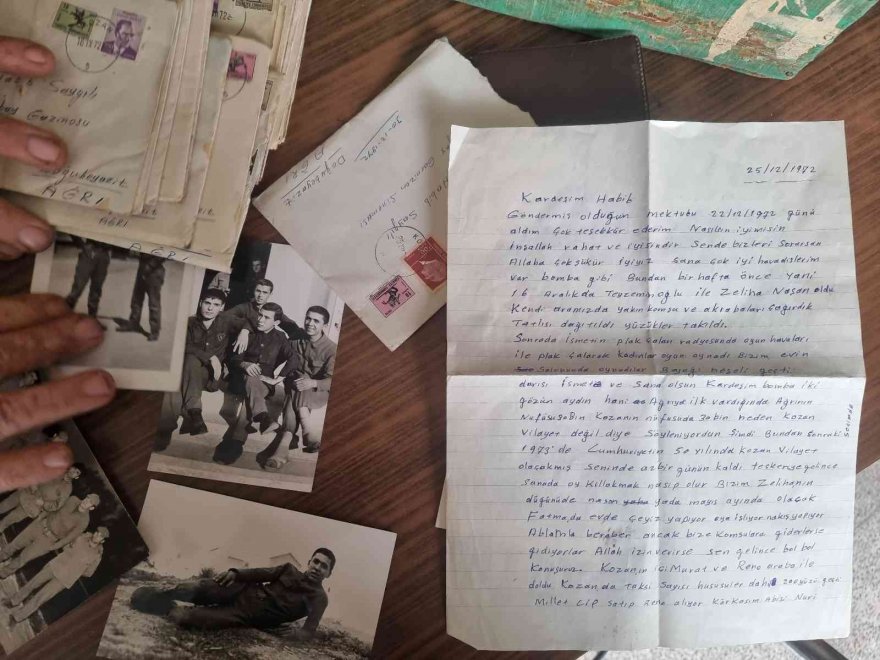 Saygılı
Gazinosu
Doğubeyazıt
AĞRI
AĞRI
AĞRI
30-12-1972
Doğubeyazıt
AĞRI
Habib
Saygılı
25/12/1972
Kardeşim Habib
Göndermiş olduğun mektubu 22/12/1972 günü
aldım Çok teşekkür ederim Nasılsın iyimisin
İnşallah rahat ve iyisindir Sende bizleri Sorarsan
Allaha Çok şükür iyiyiz Sana Çok iyi havadislerim
var bomba gibi Bundan bir hafta önce yani
16 Aralıkda Teyzemin oğlu ile Zeliha Nişan oldu
Kendi aramızda yakın komşu ve akrabaları Çağırdık
Tatlısı dağıtıldı yüzükler takıldı.
Sonrada İsmetin plak Çaları radyosunda oyun havaları
ile plak Çalarak kadınlar oyun oynadı Bizim evin
Salonunda oynadılar Bayağı neşeli geçti
darısı İsmete ve Sana olsun Kardeşim bomba iki
gözün aydın hani Ağrıya ilk vardığında Ağrının
Nüfusu 30Bin Kozanın nüfusuda 30bin neden Kozan
Vilayet değil diye Söyleniyordun Şimdi Bundan Sonraki
senede
1973'de Cumhuriyetin 50 yılında Kozan Vilayet
olacakmış Seninde az bir günün kaldı teskereye gelince
Sanada oy Kullakmak nasip olur Bizim Zelihanın
düğünüde nasan yada mayıs ayında olacak
Fatmada evde Çeyiz yapıyor oya işliyor nakış yapıyor
Ablamla beraber ancak bize Komşulara giderlerse
gidiyorlar Allah izin verirse sen gelince bol bol
Konuşuruz. Kozanın içi Murat ve Reno araba ile
doldu Kozanda taksi Sayısı hususiler dahil 200yüzü geçti
Millet Cip satıp Reno alıyor Körkasım Abisi Nuri